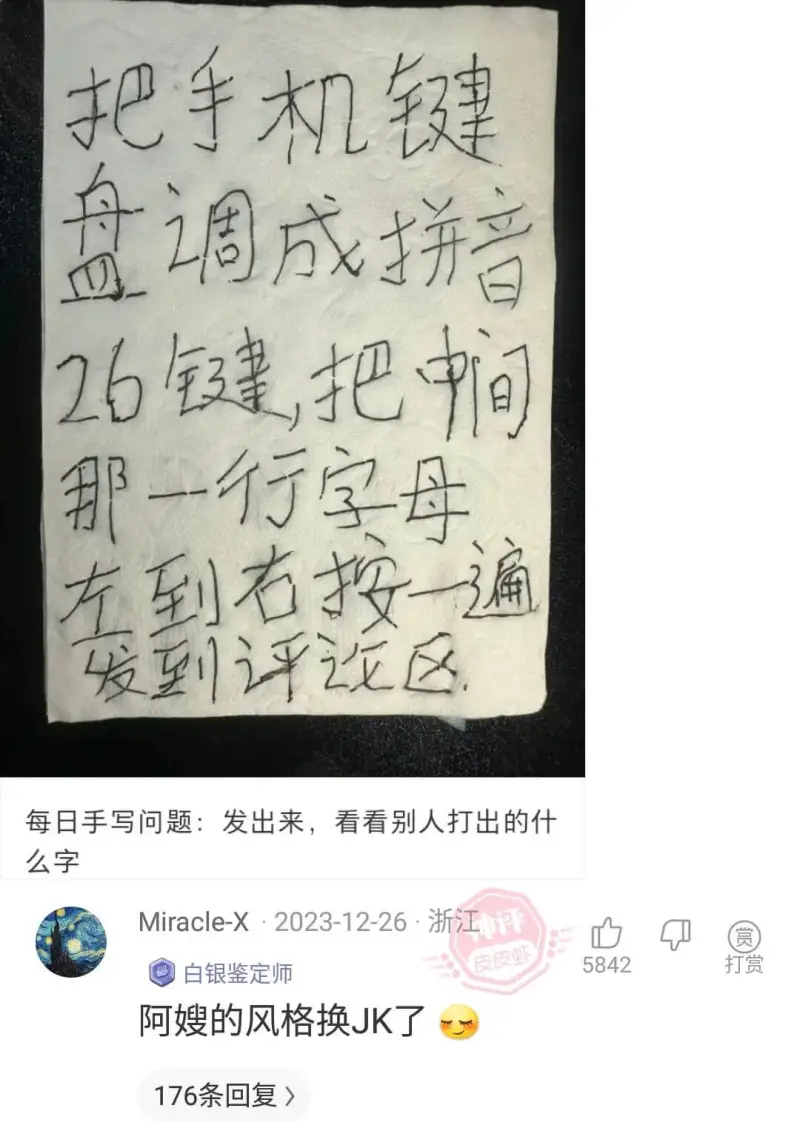 把手机键
盘调成拼音
26键,把中间
那一行字母
左到右按一遍
发到评论区.
每日手写问题：发出来，看看别人打出的什
么字
Miracle-X · 2023-12-26 · 浙江
神评
皮皮虾
5842
赏
打赏
白银鉴定师
阿嫂的风格换JK了
176条回复 >